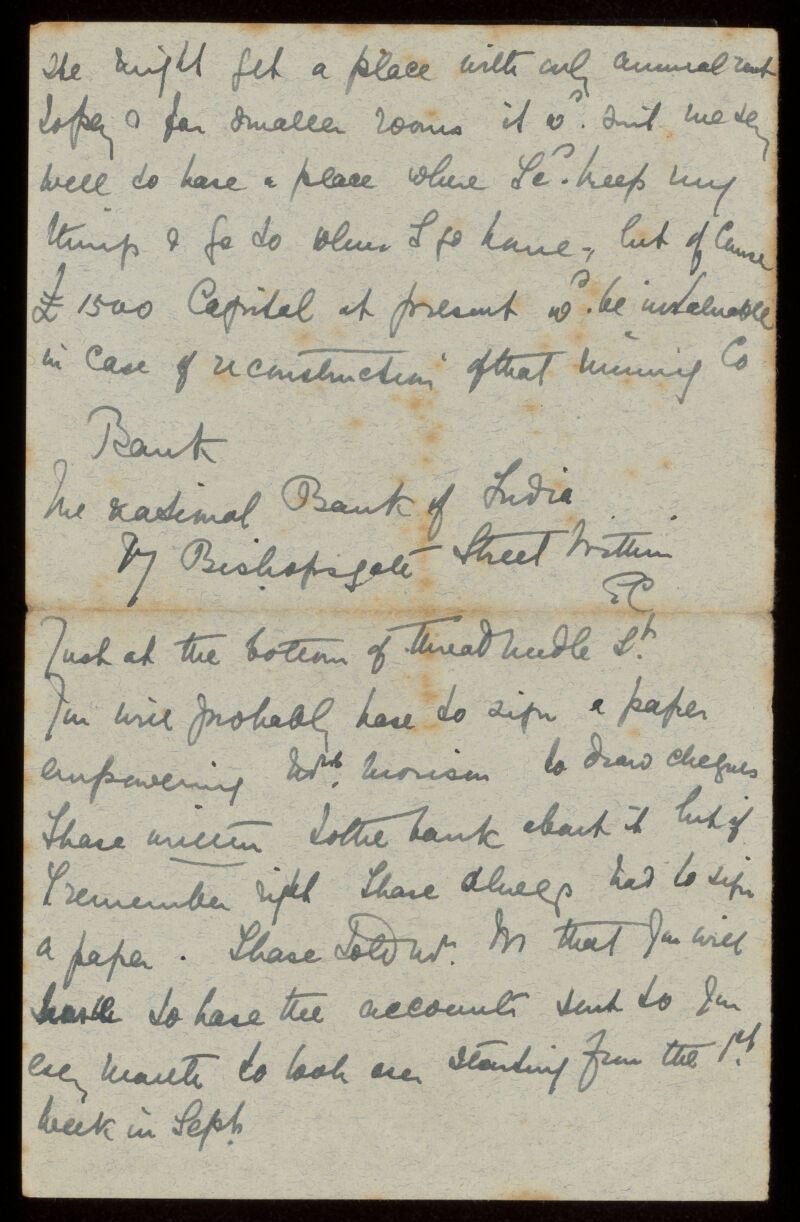 We might get a place with only annual rent
to pay & far smaller rooms it wd. suit me very
well to have a place where I cd. keep my
things & go to when I go home -, but of course
£1500 Capital at present wd. be invaluable
in case of reconstruction of that mining Co
Bank
The National Bank of India
17 Bishopsgate Street Within
EC
Just at the bottom of Threadneedle St.
You will probably have to sign a paper
empowering Morison to draw cheques
I have written to the bank about it but if
I remember right I have always had to sign
a paper. I have told M that you will
have to have the accounts sent to you
every month to look over starting from the 1st.
week in Sept.